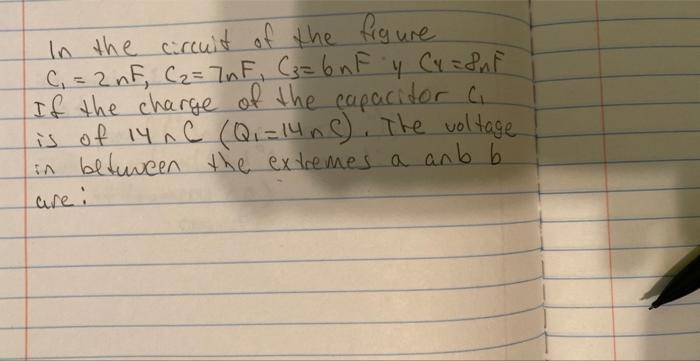 In the circuit of the figure
C₁ = 2nF, C₂= 7nF, C₃=6nF y C4=8nF
If the charge of the capacitor C₁
is of 14 nC (Q₁=14nC). The voltage
in between the extremes a anb b
are: